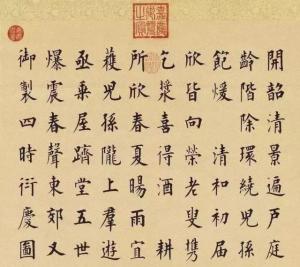 開韶清景遍戶庭
齡階除環繞兒孫
飽煖清和初屆
欣皆向榮老叟携
乞漿喜得酒耕
所欣春夏暘雨宜
穫兒孫隴上羣遊
亟乘屋躋堂五世
爆震春聲東郊又
御製四時衍慶圖